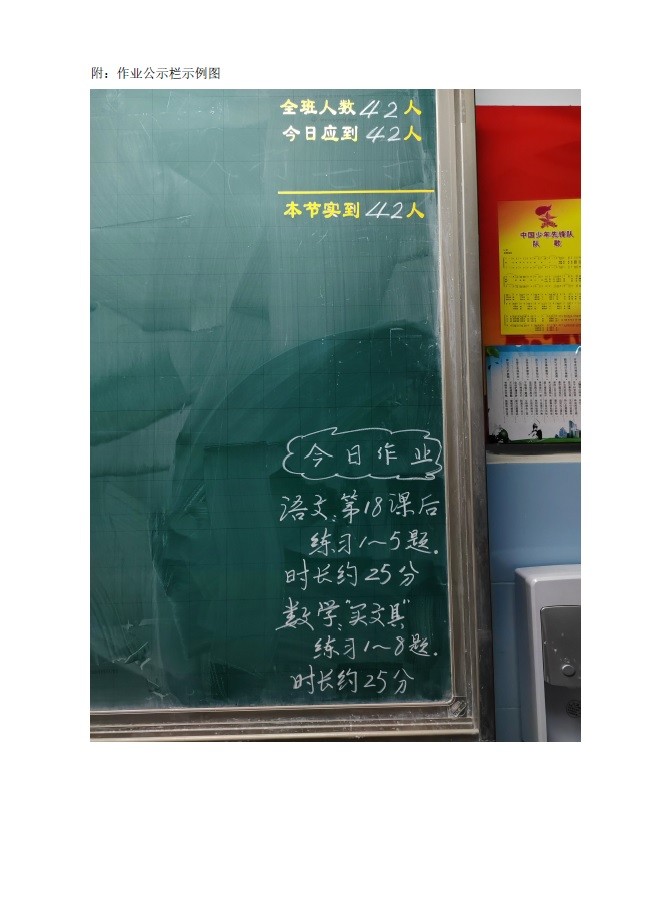 附：作业公示栏示例图
全班人数42人
今日应到42人
本节实到42人
中国少年先锋队
队 歌
今日作业
语文：第18课后
练习1～5题.
时长约25分
数学："买文具"
练习1～8题.
时长约25分